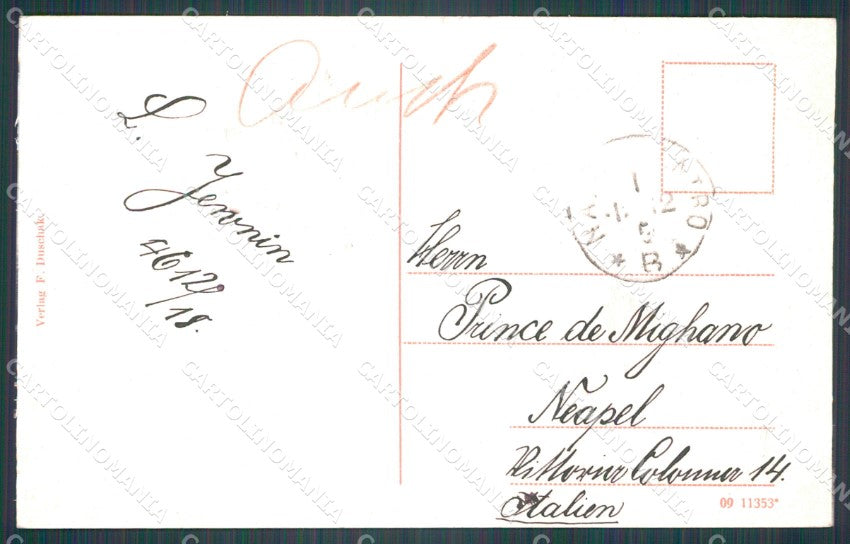 Auch
L. Jeronin
46 12/18.
Verlag F. Duschak.
B
Herrn
Prince de Mighano
Neapel
Vittoria Colonna 14.
Italien
09 11353*
CARTOLINOMANIA